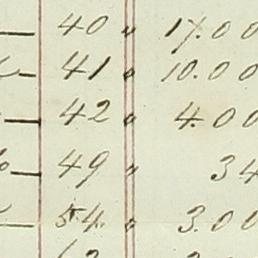 — 40 " 17.00
— 41 " 10.00
— 42 " 4.00
— 49 " 34
— 54 " 3.00